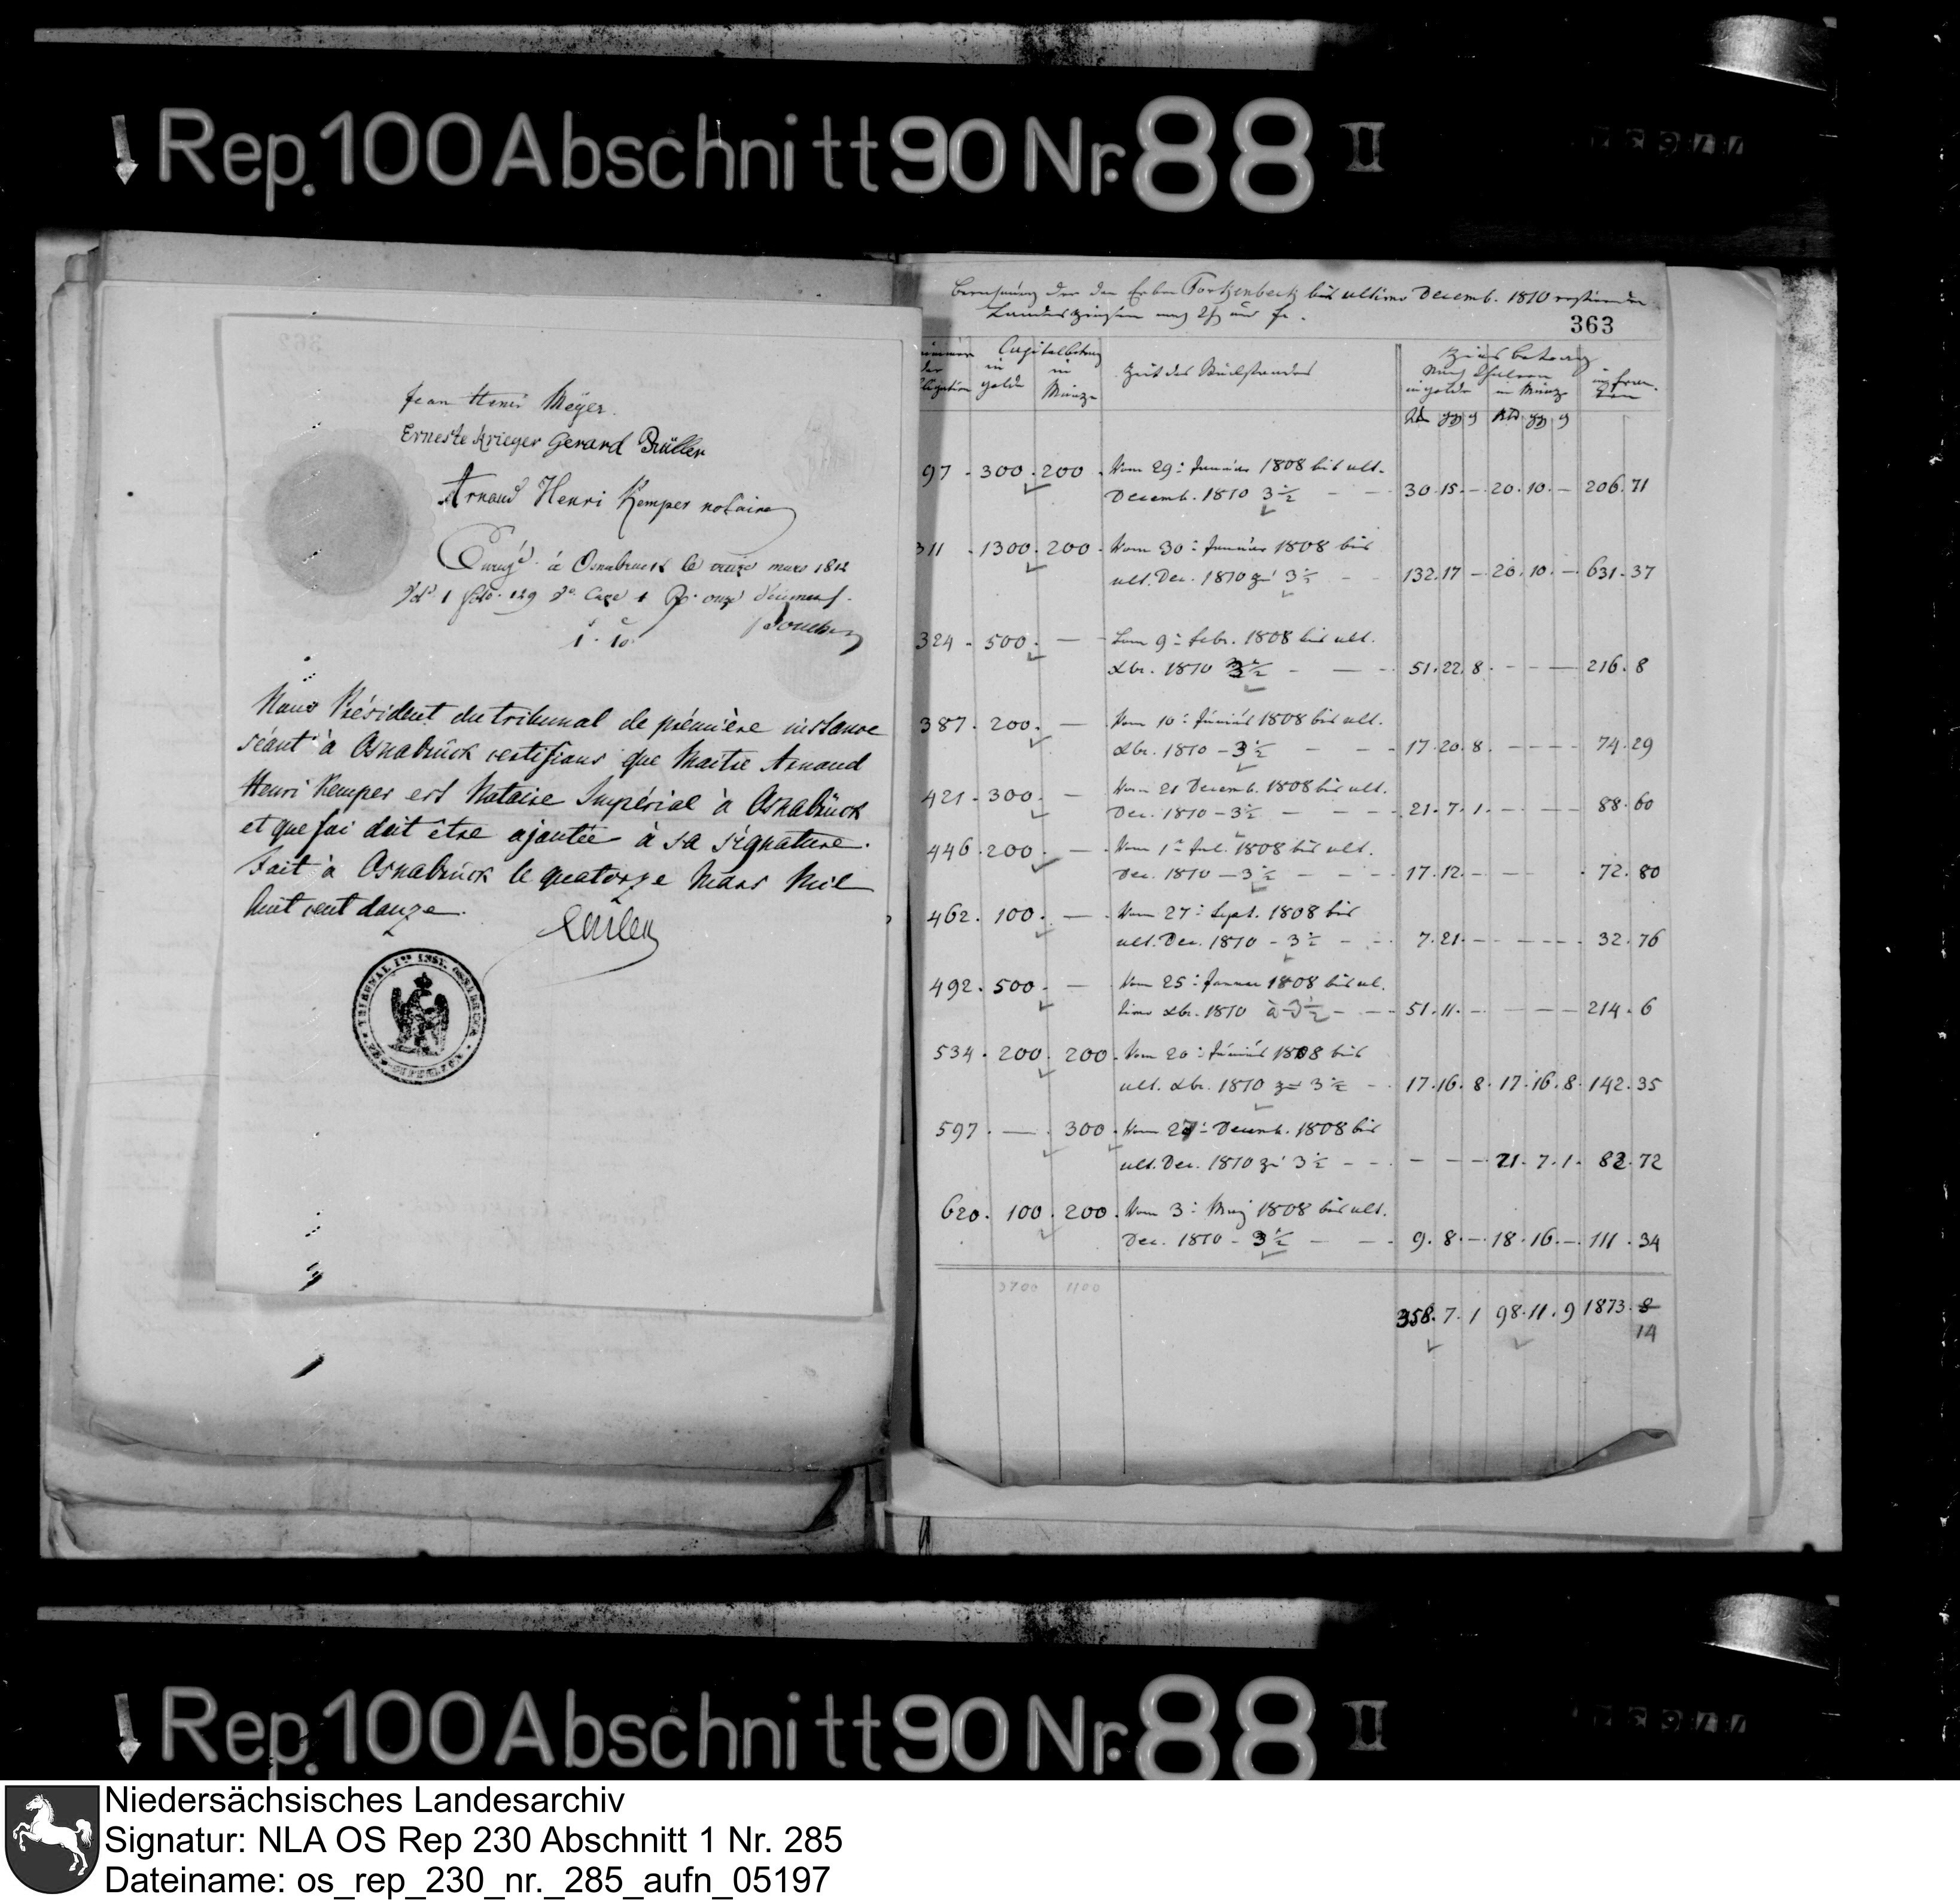 Rep. 100 Abschnitt 90 Nr. 88 II
Jean Henri Meyer.
Erneste Krieger Gerard Brüller
Arnaud Henri Kemper notaire
à Osnabruck le onze mars 1812
Nous Président du tribunal de première instance
séant à Osnabrück certifions que Maitre Arnaud
Henri Kemper est Notaire Impérial à Osnabrück
et que foi doit être ajoutée à sa signature.
Fait à Osnabrück le quatorze Mars Mil
huit cent douze.
TRIBUNAL Ire INST.
Berechnung der den Erben Forkenbeck bis ultimo Decemb. 1810
Landes Zinsen
363
Capitalbetrag
in Golde in Münze
Zeit des Rückstandes
Zins betrag
in Golde in Münze
97 - 300 . 200 - Vom 29: Januar 1808 bis ult.
Decemb. 1810 3½ - - 30.15.- 20.10.- 206.71
311 - 1300 . 200 - Vom 30: Januar 1808 bis
ult. Dec. 1810 zu 3½ - - 132.17 - 20.10.- 631.37
324 - 500 . - Vom 9: Febr. 1808 bis ult.
Xbr. 1810 3½ - - - 51.22.8. - - - 216.8
387 . 200 . - Vom 10: Junius 1808 bis ult.
Xbr. 1810 - 3½ - - - 17.20.8. - - - 74.29
421 - 300 . - Vom 21 Decemb. 1808 bis ult.
Dec. 1810 - 3½ - - - 21.7.1. - - - 88.60
446 . 200 . - Vom 1: Jul. 1808 bis ult.
Dec. 1810 - 3½ - - - 17.12. - - 72.80
462 . 100 . - Vom 27: Sept. 1808 bis
ult. Dec. 1810 - 3½ - - 7.21. - - - - 32.76
492 . 500 . - Vom 25: Januar 1808 bis ul.
timo Xbr. 1810 à 3½ - - 51.11. - - - 214.6
534 . 200 . 200 . Vom 20: Junius 1808 bis
ult. Xbr. 1810 zu 3½ - 17.16.8. 17.16.8. 142.35
597 . - . 300 . Vom 27: Decemb. 1808 bis
ult. Dec. 1810 zu 3½ - - - - - 21.7.1. 82.72
620 . 100 . 200 . Vom 3: May 1808 bis ult.
Dec. 1810 - 3½ - - 9.8.- 18.16.- 111.34
3700 1100
358.7.1 98.11.9 1873.8
14
Rep. 100 Abschnitt 90 Nr. 88 II
Niedersächsisches Landesarchiv
Signatur: NLA OS Rep 230 Abschnitt 1 Nr. 285
Dateiname: os_rep_230_nr._285_aufn_05197